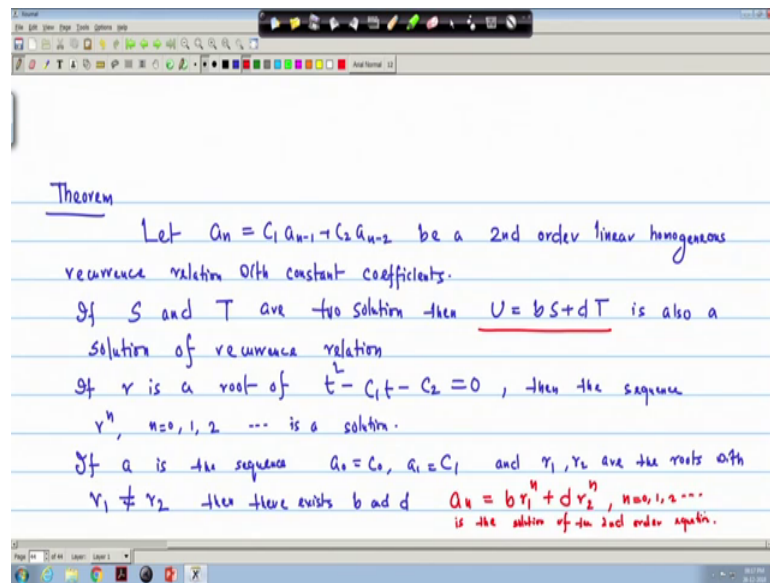 Journal
File Edit View Page Tools Options Help
Arial Normal 12
Theorem
Let aₙ = C₁ aₙ₋₁ + C₂ aₙ₋₂ be a 2nd order linear homogeneous
recurrence relation with constant coefficients.
If S and T are two solution then U = bS + dT is also a
solution of recurrence relation
If r is a root of t² - C₁t - C₂ = 0 , then the sequence
rⁿ, n=0, 1, 2 --- is a solution.
If a is the sequence a₀ = C₀, a₁ = C₁ and r₁, r₂ are the roots with
r₁ ≠ r₂ then there exists b and d aₙ = b r₁ⁿ + d r₂ⁿ, n=0, 1, 2 ---
is the solution of the 2nd order equation.
Page 44 of 44 Layer: Layer 1